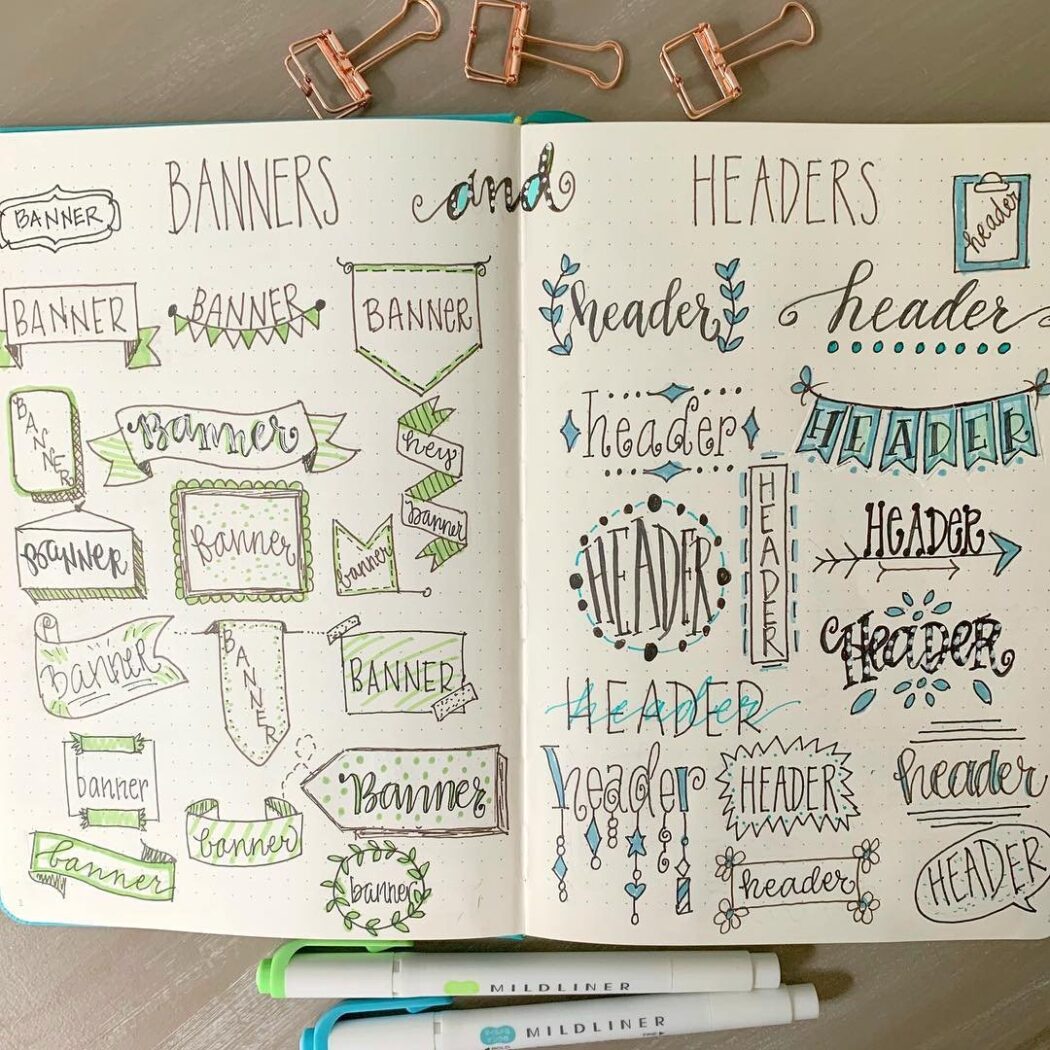 BANNERS and HEADERS
BANNER
BANNER
BANNER
BANNER
BANNER
Banner
hey
banner
BANNER
Banner
banner
Banner
BANNER
BANNER
banner
banner
Banner
banner
banner
header
header
header
header
HEADER
HEADER
HEADER
HEADER
HEADER
HEADER
header
header
HEADER
header
header
HEADER
MILDLINER
MILDLINER